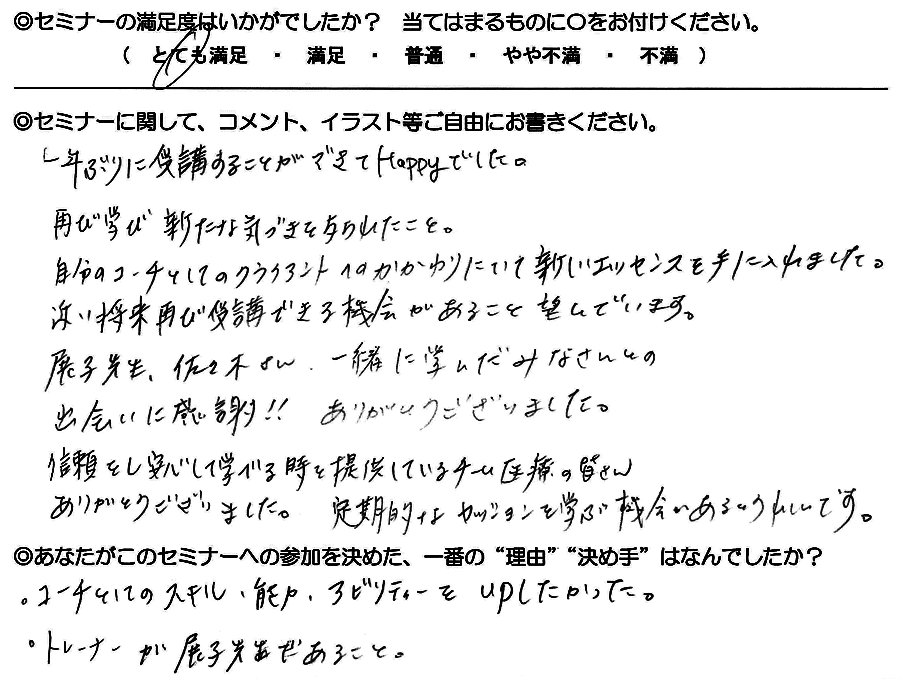 ◎セミナーの満足度はいかがでしたか？　当てはまるものに〇をお付けください。
（　とても満足　・　満足　・　普通　・　やや不満　・　不満　）
◎セミナーに関して、コメント、イラスト等ご自由にお書きください。
年ぶりに受講することができてHappyでした。
再び学び 新たな気づきを得られたこと。
自分のコーチとしてのクライアントへのかかわりについて新しいエッセンスを手に入れました。
近い将来再び受講できる機会があること望んでいます。
展子先生、佐々木さん、一緒に学んだみなさんとの
出会いに感謝!! ありがとうございました。
信頼をし安心して学べる時を提供しているチーム医療の皆さん
ありがとうございました。 定期的なセッションを学ぶ機会があるとうれしいです。
◎あなたがこのセミナーへの参加を決めた、一番の“理由”“決め手”はなんでしたか？
。コーチとしてのスキル・能力・アビリティーを upしたかった。
。トレーナーが展子先生であること。